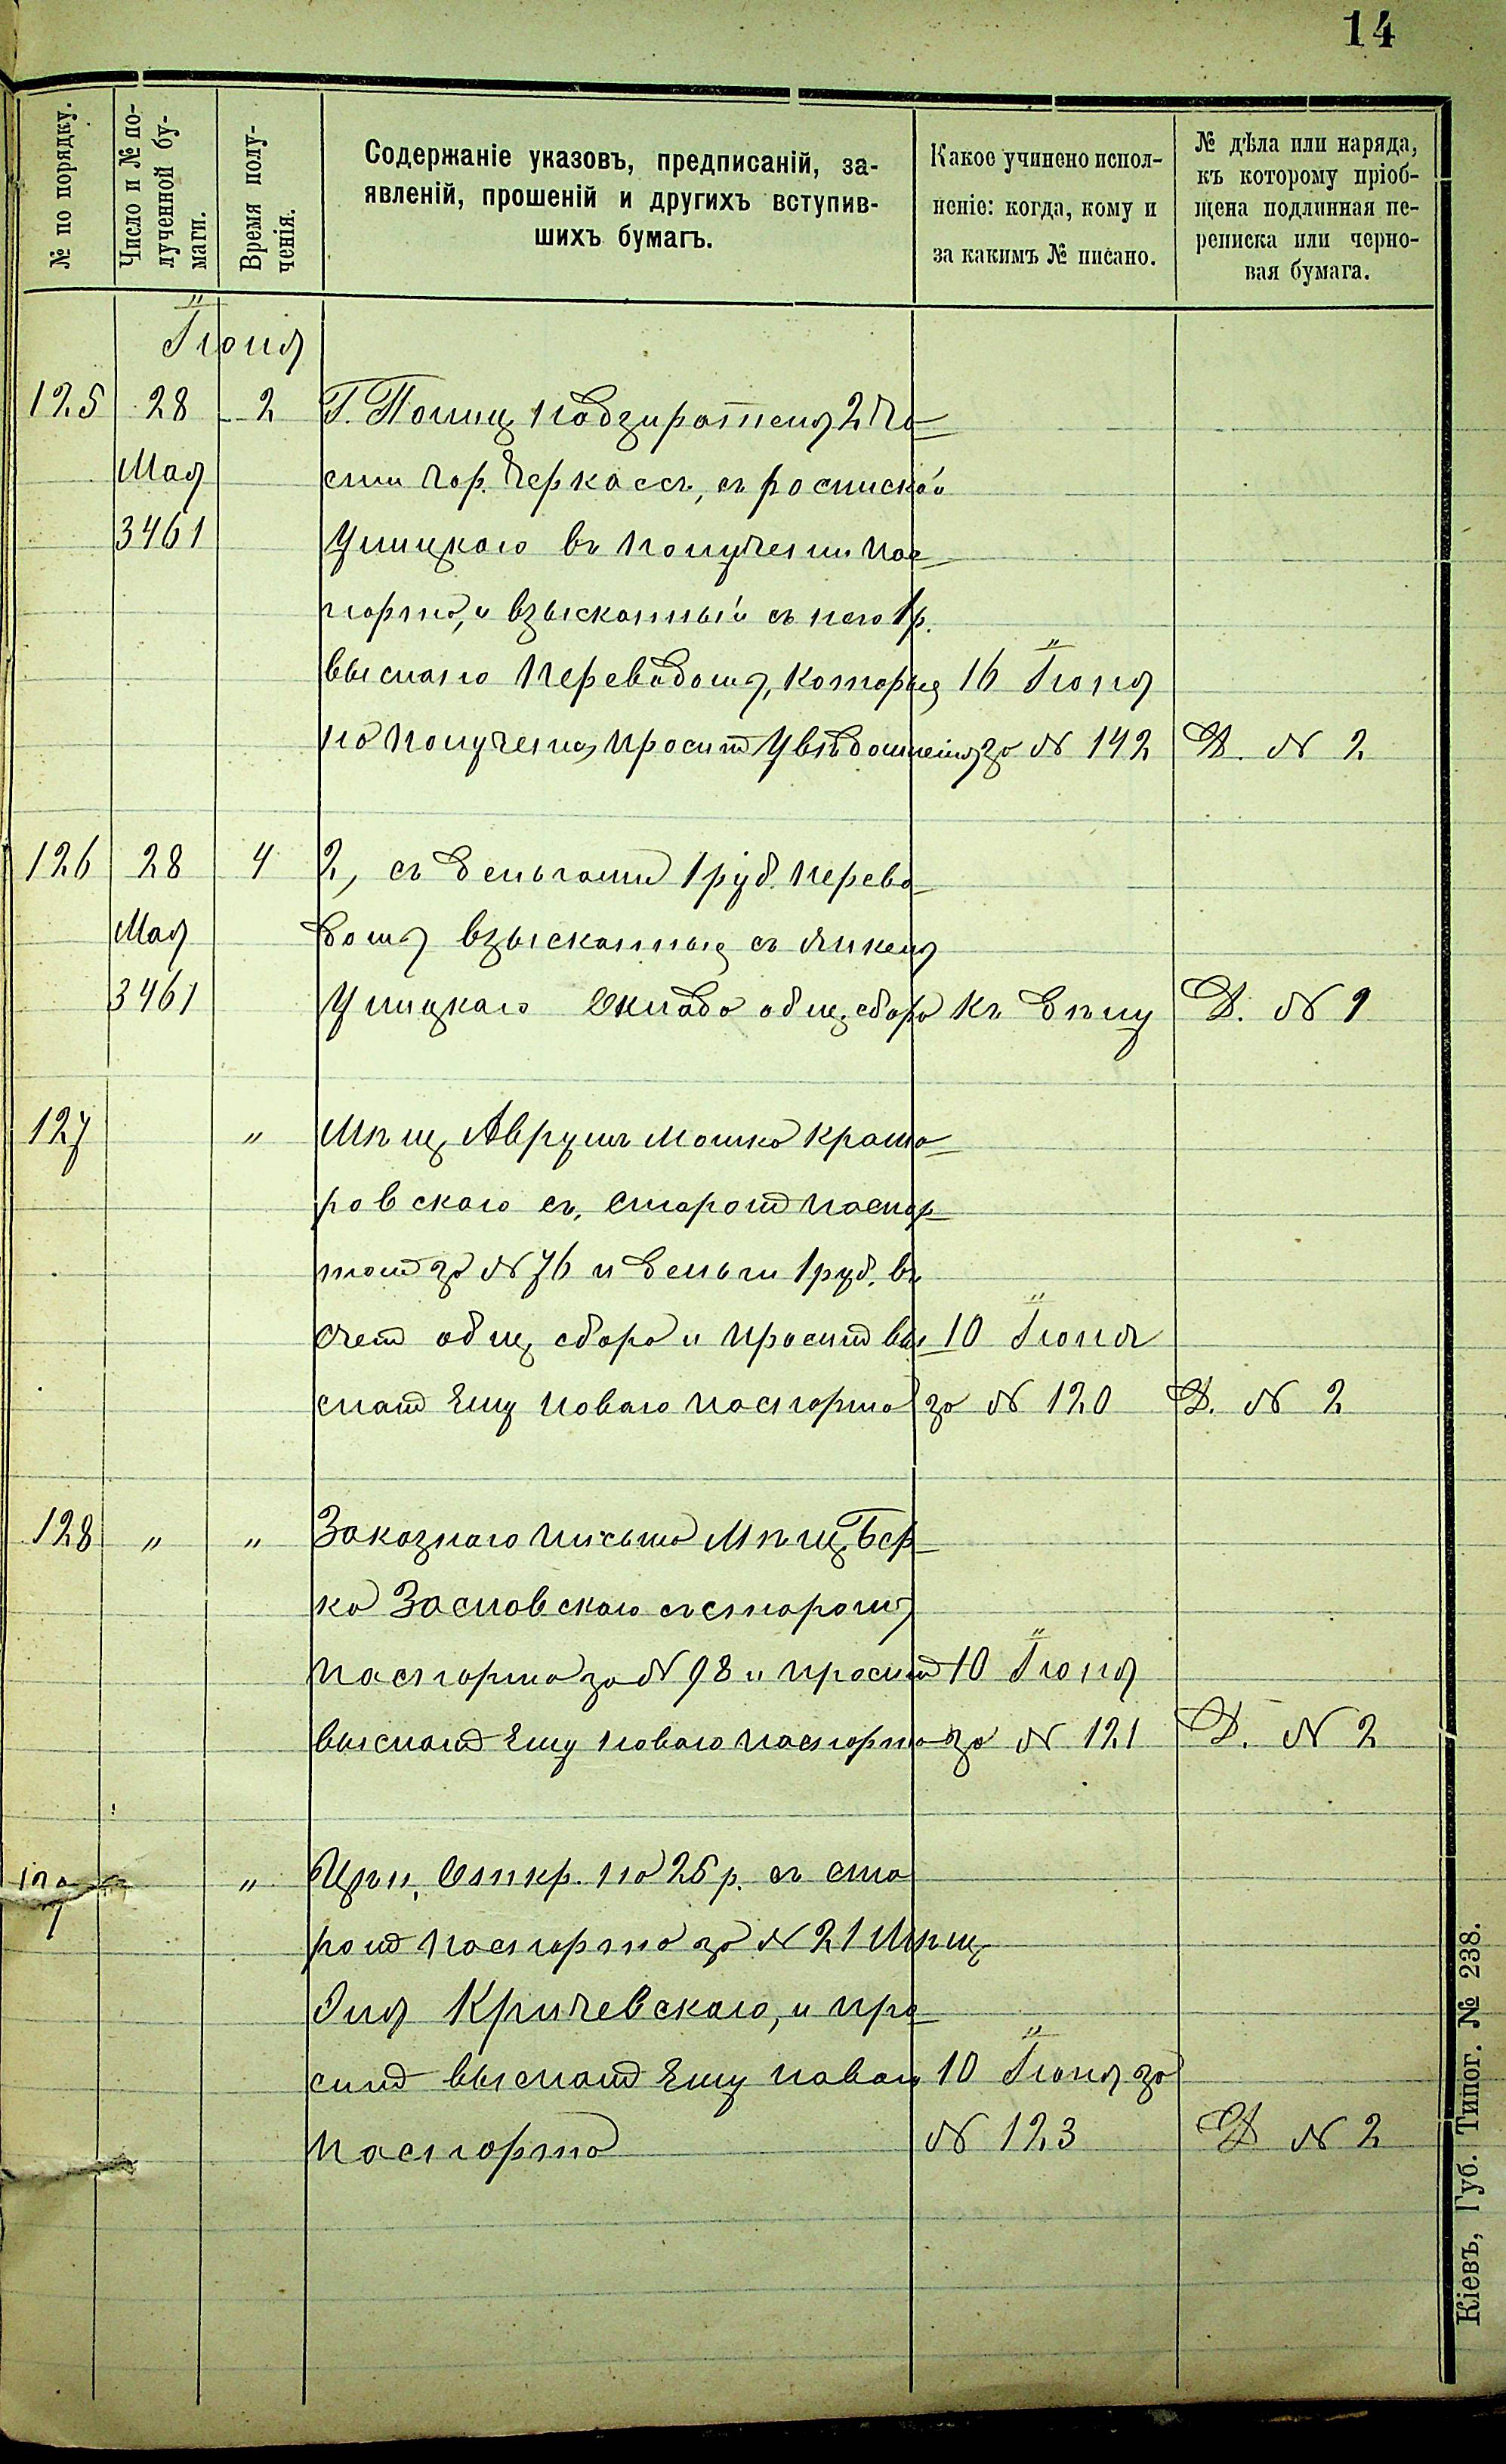 14
№ по порядку.
Число и № по-
лученной бу-
маги.
Время полу-
ченія.
Содержаніе указовъ, предписаній, за-
явленій, прошеній и другихъ вступив-
шихъ бумагъ.
Какое учинено испол-
неніе: когда, кому и
за какимъ № писано.
№ дѣла или наряда,
къ которому пріоб-
щена подлинная пе-
реписка или черно-
вая бумага.
Іюня
125 28 2 Г. Полиц. Надзирателя 2 Ча-
Мая сти гор. Черкассъ, съ роспиской
3461 Улицкаго въ получении пас-
порта, и взысканный съ него 1 р.
выслано переводомъ, которыя 16 Іюня
по получении просит Уведомления за № 142 Д. № 2
126 28 4 2, съ деньгами 1 руб. перево-
Мая домъ взысканные съ
3461 Улицкаго Оклада общ. сбора Къ делу Д. № 1
127 " Мѣщ. Аврумъ Мошко Крама-
ровскаго съ старом паспор-
том за № 76 и деньги 1 руб. въ
счет общ. сбора и просит вы- 10 Іюня
слат Ему новаго паспорта за № 120 Д. № 2
128 " " Заказнаго письма Мѣщ. Бер-
ка Заславскаго съ старомъ
паспорта за № 98 и просит 10 Іюня
выслат Ему новаго паспорта за № 121 Д. № 2
" Цѣн. Откр. на 25 р. съ ста
ром паспорта за № 21 Мѣщ.
Эля Кричевскаго, и про-
сит выслат Ему новаго 10 Іюня за
паспорта № 123 Д № 2
Кіевъ, Губ. Типог. № 238.